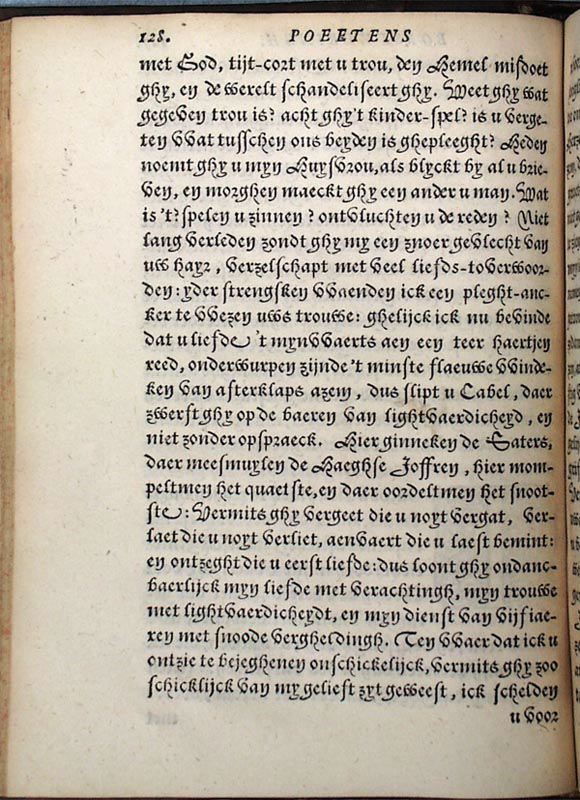 128. POEETENS
met God, tijt-cort met u trou, den Hemel misdoet
ghy, en de werelt schandeliseert ghy. Weet ghy wat
gegeven trou is? acht ghy't kinder-spel? is u verge-
ten vvat tusschen ons beyden is ghepleeght? Heden
noemt ghy u myn Huysvrou, als blyckt by al u brie-
ven, en morghen maeckt ghy een ander u man. Wat
is 't? spelen u zinnen? ontvluchten u de reden? Niet
lang verleden zondt ghy my een znoer gevlecht van
uw hayr, verzelschapt met veel liefds-toverwoor-
den: yder strengsken vvaenden ick een pleght-anc-
ker te vvezen uws trouwe: ghelijck ick nu bevinde
dat u liefde 't mynvvaerts aen een teer haertjen
reed, onderwurpen zijnde 't minste flaeuwe vvinde-
ken van afterklaps azem, dus slipt u Cabel, daer
zwerft ghy op de baeren van lightvaerdicheyd, en
niet zonder opspraeck. Hier ginneken de Saters,
daer meesmuylen de Haeghse Joffren, hier mom-
peltmen het quaelste, en daer oordeltmen het snoot-
ste: Vermits ghy vergeet die u noyt vergat, ver-
laet die u noyt verliet, aenvaert die u laest bemint:
en ontzeght die u eerst liefde: dus loont ghy ondanc-
baerlijck myn liefde met verachtingh, myn trouwe
met lightvaerdicheydt, en myn dienst van vijf iae-
ren met snoode vergheldingh. Ten vvaer dat ick u
ontzie te bejeghenen onschickelijck, vermits ghy zoo
schicklijck van my gelieft zyt geweest, ick schelden
u voor